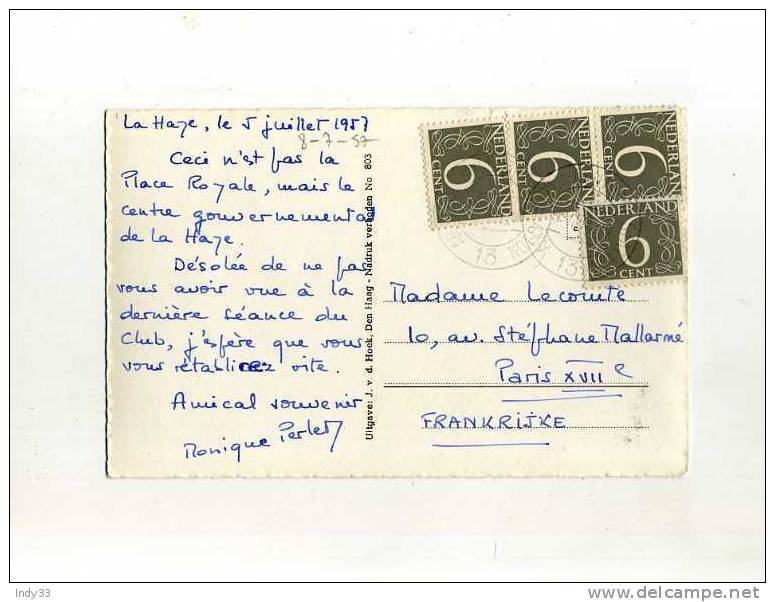 La Haye, le 5 juillet 1957
8-7-57
Ceci n'est pas la
Place Royale, mais le
centre gouvernemental
de la Haye.
Désolée de ne pas
vous avoir vue à la
dernière séance du
Club, j'espère que vous
vous rétablirez vite.
Amical souvenir
Monique Perlet
Uitgave: J. v. d. Hoek, Den Haag - Nadruk verboden No 803
NEDERLAND
6
CENT
NEDERLAND
6
CENT
NEDERLAND
6
CENT
NEDERLAND
6
CENT
Madame Lecomte
10, av. Stéphane Mallarmé
Paris XVII e
FRANKRIJKE
Indy33
delcampe.net